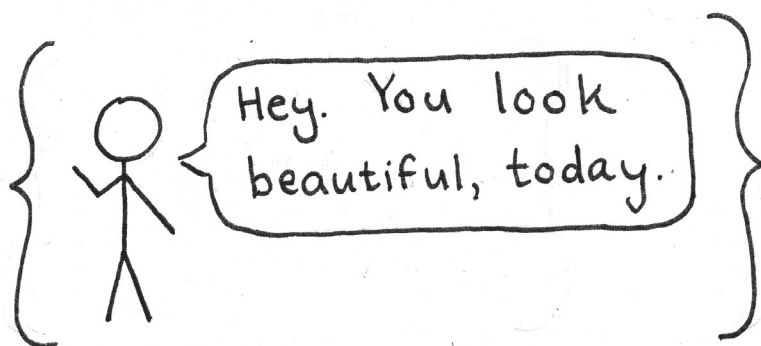 Hey. You look
beautiful, today.